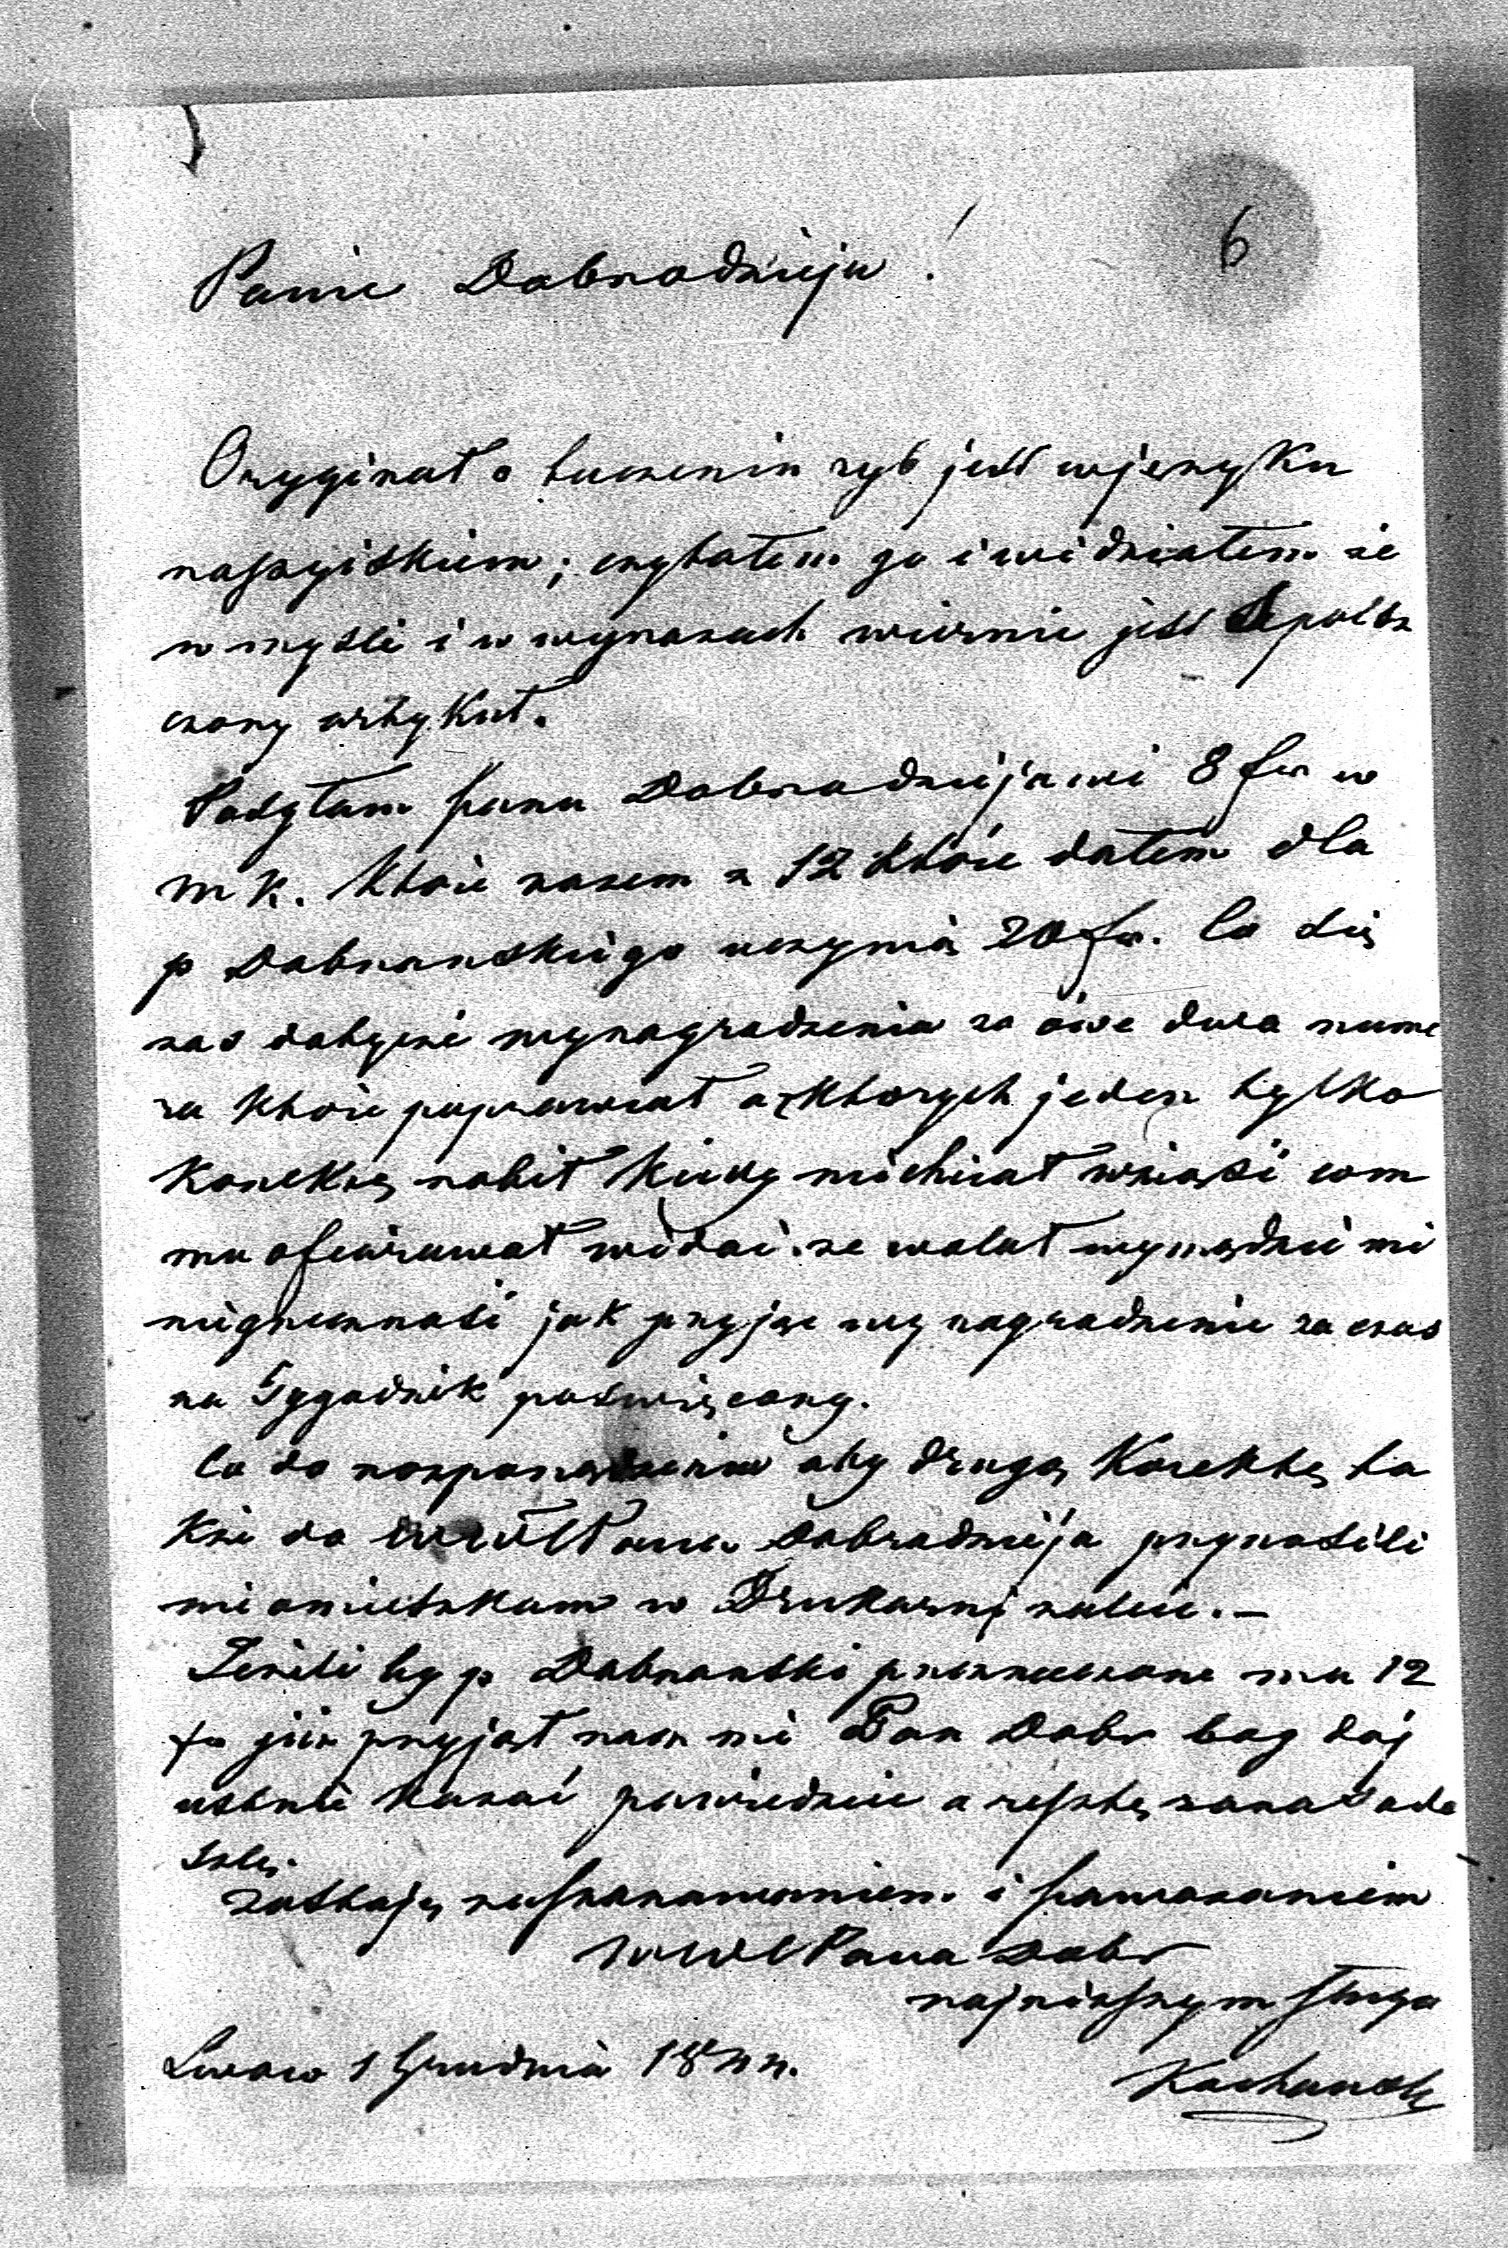 6
Panie Dobrodzieju!
Oryginał o tuczeniu ryb jest w języku
rossyiskiem; czytałem go i widziałem że
w myśli i w wyrazach wiernie jest spolsz
czony artykuł.
Posyłam panu Dobrodziejowi 8 fr w
m k. które razem z 12 które dałem dla
p Dobrzanskiego uczynią 20 fr. Co się
zas dotycze wynagrodzenia za owe dwa nume
ra które poprawiał a z ktorych jeden tylko
korektę robił kiedy niechciał wziąść com
mu ofiarował widać ze wolał wyrządzić mi
niegrzeczność jak przyjąc wynagrodzenie za czas
na Tygodnik poswięcony.
Co do rozporządzenia aby drugą korektę ta
kże do Dobrodzieja przynosili
nieomieszkam w Drukarni zalecic. —
Jeżeli by p Dobrzanski przeznaczone mu 12
fr przyjął racz mi Pan Dobr bog daj
ustnie kazać powiedzieć a resztę zaraz ode
szlę.
zostaję z uszanowaniem i powazaniem
WWC Pana Dobr
najniższym sługą
Lwow 1 Grudnia 1844.